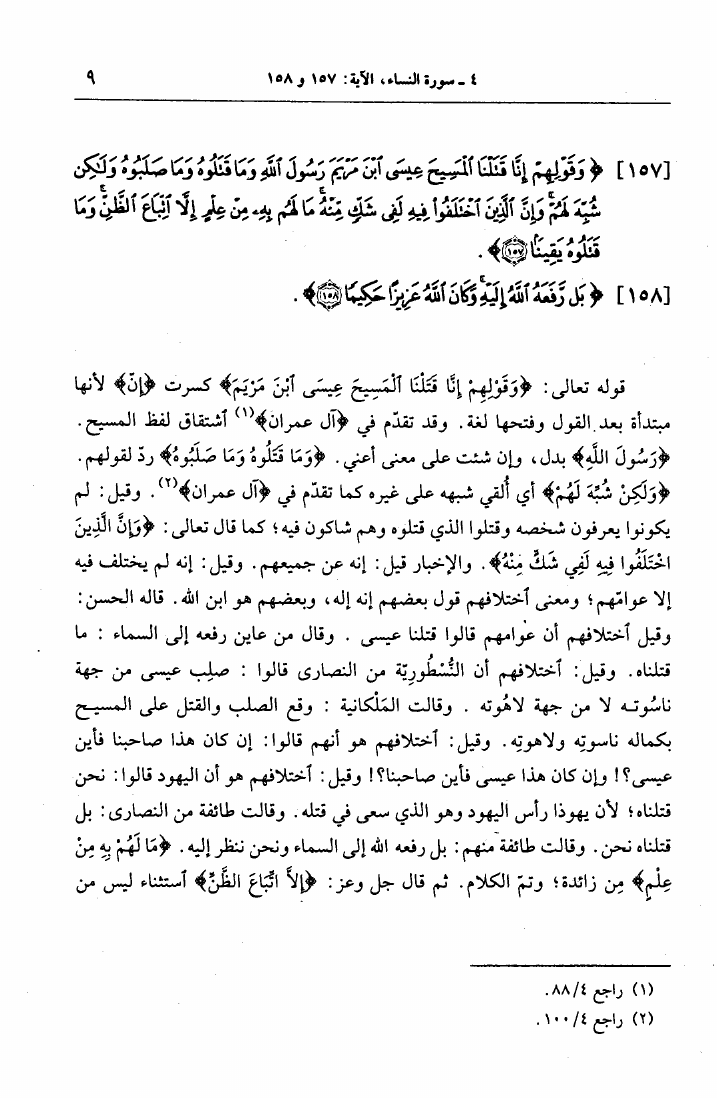 ٤ ـ سورة النساء، الآية: ١٥٧ و ١٥٨ ٩
[١٥٧] ﴿ وَقَوْلِهِمْ إِنَّا قَتَلْنَا ٱلْمَسِيحَ عِيسَى ٱبْنَ مَرْيَمَ رَسُولَ ٱللَّهِ وَمَا قَتَلُوهُ وَمَا صَلَبُوهُ وَلَٰكِن
شُبِّهَ لَهُمْ ۚ وَإِنَّ ٱلَّذِينَ ٱخْتَلَفُوا۟ فِيهِ لَفِى شَكٍّ مِّنْهُ ۚ مَا لَهُم بِهِۦ مِنْ عِلْمٍ إِلَّا ٱتِّبَاعَ ٱلظَّنِّ ۚ وَمَا
قَتَلُوهُ يَقِينًۢا ١٥٧ ﴾ .
[١٥٨] ﴿ بَل رَّفَعَهُ ٱللَّهُ إِلَيْهِ ۚ وَكَانَ ٱللَّهُ عَزِيزًا حَكِيمًا ١٥٨ ﴾ .
قوله تعالى: ﴿وَقَوْلِهِمْ إِنَّا قَتَلْنَا ٱلْمَسِيحَ عِيسَى ٱبْنَ مَرْيَمَ﴾ كسرت ﴿إنّ﴾ لأنها
مبتدأة بعد القول وفتحها لغة. وقد تقدّم في ﴿آل عمران﴾(١) ٱشتقاق لفظ المسيح.
﴿رَسُولَ اللَّهِ﴾ بدل، وإن شئت على معنى أعني. ﴿وَمَا قَتَلُوهُ وَمَا صَلَبُوهُ﴾ ردّ لقولهم.
﴿وَلَكِنْ شُبِّهَ لَهُمْ﴾ أي أُلقي شبهه على غيره كما تقدّم في ﴿آل عمران﴾(٢). وقيل: لم
يكونوا يعرفون شخصه وقتلوا الذي قتلوه وهم شاكون فيه؛ كما قال تعالى: ﴿وَإِنَّ الَّذِينَ
اخْتَلَفُوا فِيهِ لَفِي شَكٍّ مِنْهُ﴾. والإخبار قيل: إنه عن جميعهم. وقيل: إنه لم يختلف فيه
إلا عوامّهم؛ ومعنى ٱختلافهم قول بعضهم إنه إله، وبعضهم هو ابن الله. قاله الحسن:
وقيل ٱختلافهم أن عوامهم قالوا قتلنا عيسى . وقال من عاين رفعه إلى السماء : ما
قتلناه. وقيل: ٱختلافهم أن النُّسْطُوريّة من النصارى قالوا : صلِب عيسى من جهة
ناسُوته لا من جهة لاهُوته . وقالت المَلْكانية : وقع الصلب والقتل على المسيح
بكماله ناسوتِه ولاهوتِه. وقيل: ٱختلافهم هو أنهم قالوا: إن كان هذا صاحبنا فأين
عيسى؟! وإن كان هذا عيسى فأين صاحبنا؟! وقيل: ٱختلافهم هو أن اليهود قالوا: نحن
قتلناه؛ لأن يهوذا رأس اليهود وهو الذي سعى في قتله. وقالت طائفة من النصارى: بل
قتلناه نحن. وقالت طائفة منهم: بل رفعه الله إلى السماء ونحن ننظر إليه. ﴿مَا لَهُمْ بِهِ مِنْ
عِلْمٍ﴾ مِن زائدة؛ وتمّ الكلام. ثم قال جل وعز: ﴿إلاَّ اتِّبَاعَ الظَّنِّ﴾ ٱستثناء ليس من
(١) راجع ٨٨/٤.
(٢) راجع ١٠٠/٤.